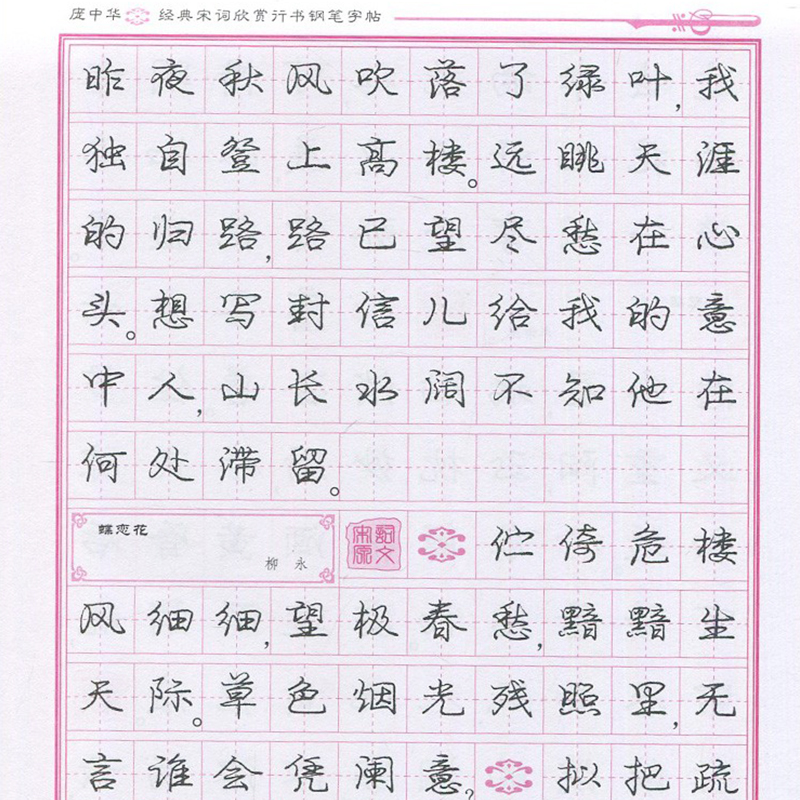 庞中华 经典宋词欣赏行书钢笔字帖
昨夜秋风吹落了绿叶,我
独自登上高楼。远眺天涯
的归路,路已望尽愁在心
头。想写封信儿给我的意
中人,山长水阔不知他在
何处滞留。
蝶恋花
柳永
宋词原文
伫倚危楼
风细细,望极春愁,黯黯生
天际。草色烟光残照里,无
言谁会凭阑意? 拟把疏